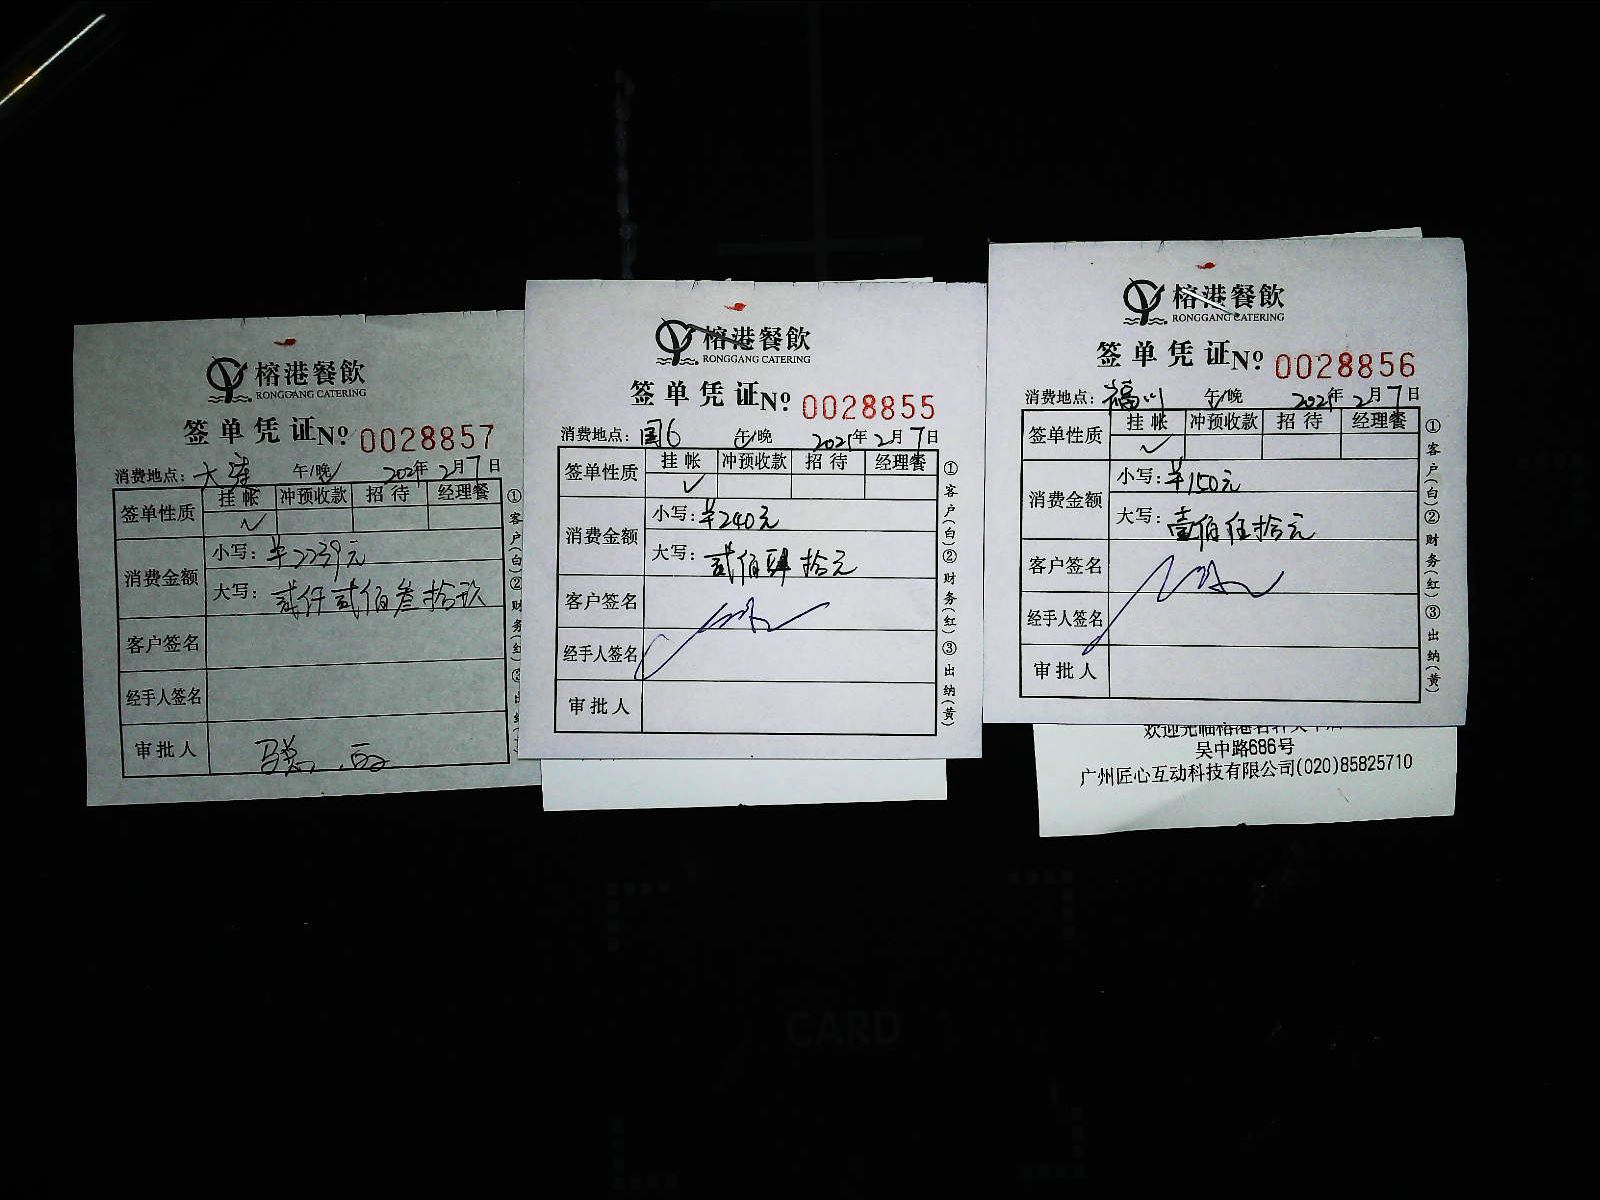 榕港餐飲
RONGGANG CATERING
签单凭证 No 0028857
消费地点： 午/晚 2月7日
签单性质 挂帐 冲预收款 招待 经理餐
消费金额
小写：¥2239元
大写：贰仟贰佰叁拾玖
客户签名
经手人签名
审批人
①客户(白)②财务(红)
榕港餐飲
RONGGANG CATERING
签单凭证 No 0028855
消费地点：国6 午/晚 2021年2月7日
签单性质 挂帐 冲预收款 招待 经理餐
消费金额
小写：¥240元
大写：贰佰肆拾元
客户签名
经手人签名
审批人
①客户(白)②财务(红)③出纳(黄)
榕港餐飲
RONGGANG CATERING
签单凭证 No 0028856
消费地点：福川 午/晚 2021年2月7日
签单性质 挂帐 冲预收款 招待 经理餐
消费金额
小写：¥150元
大写：壹佰伍拾元
客户签名
经手人签名
审批人
①客户(白)②财务(红)③出纳(黄)
吴中路686号
广州匠心互动科技有限公司(020)85825710
CARD